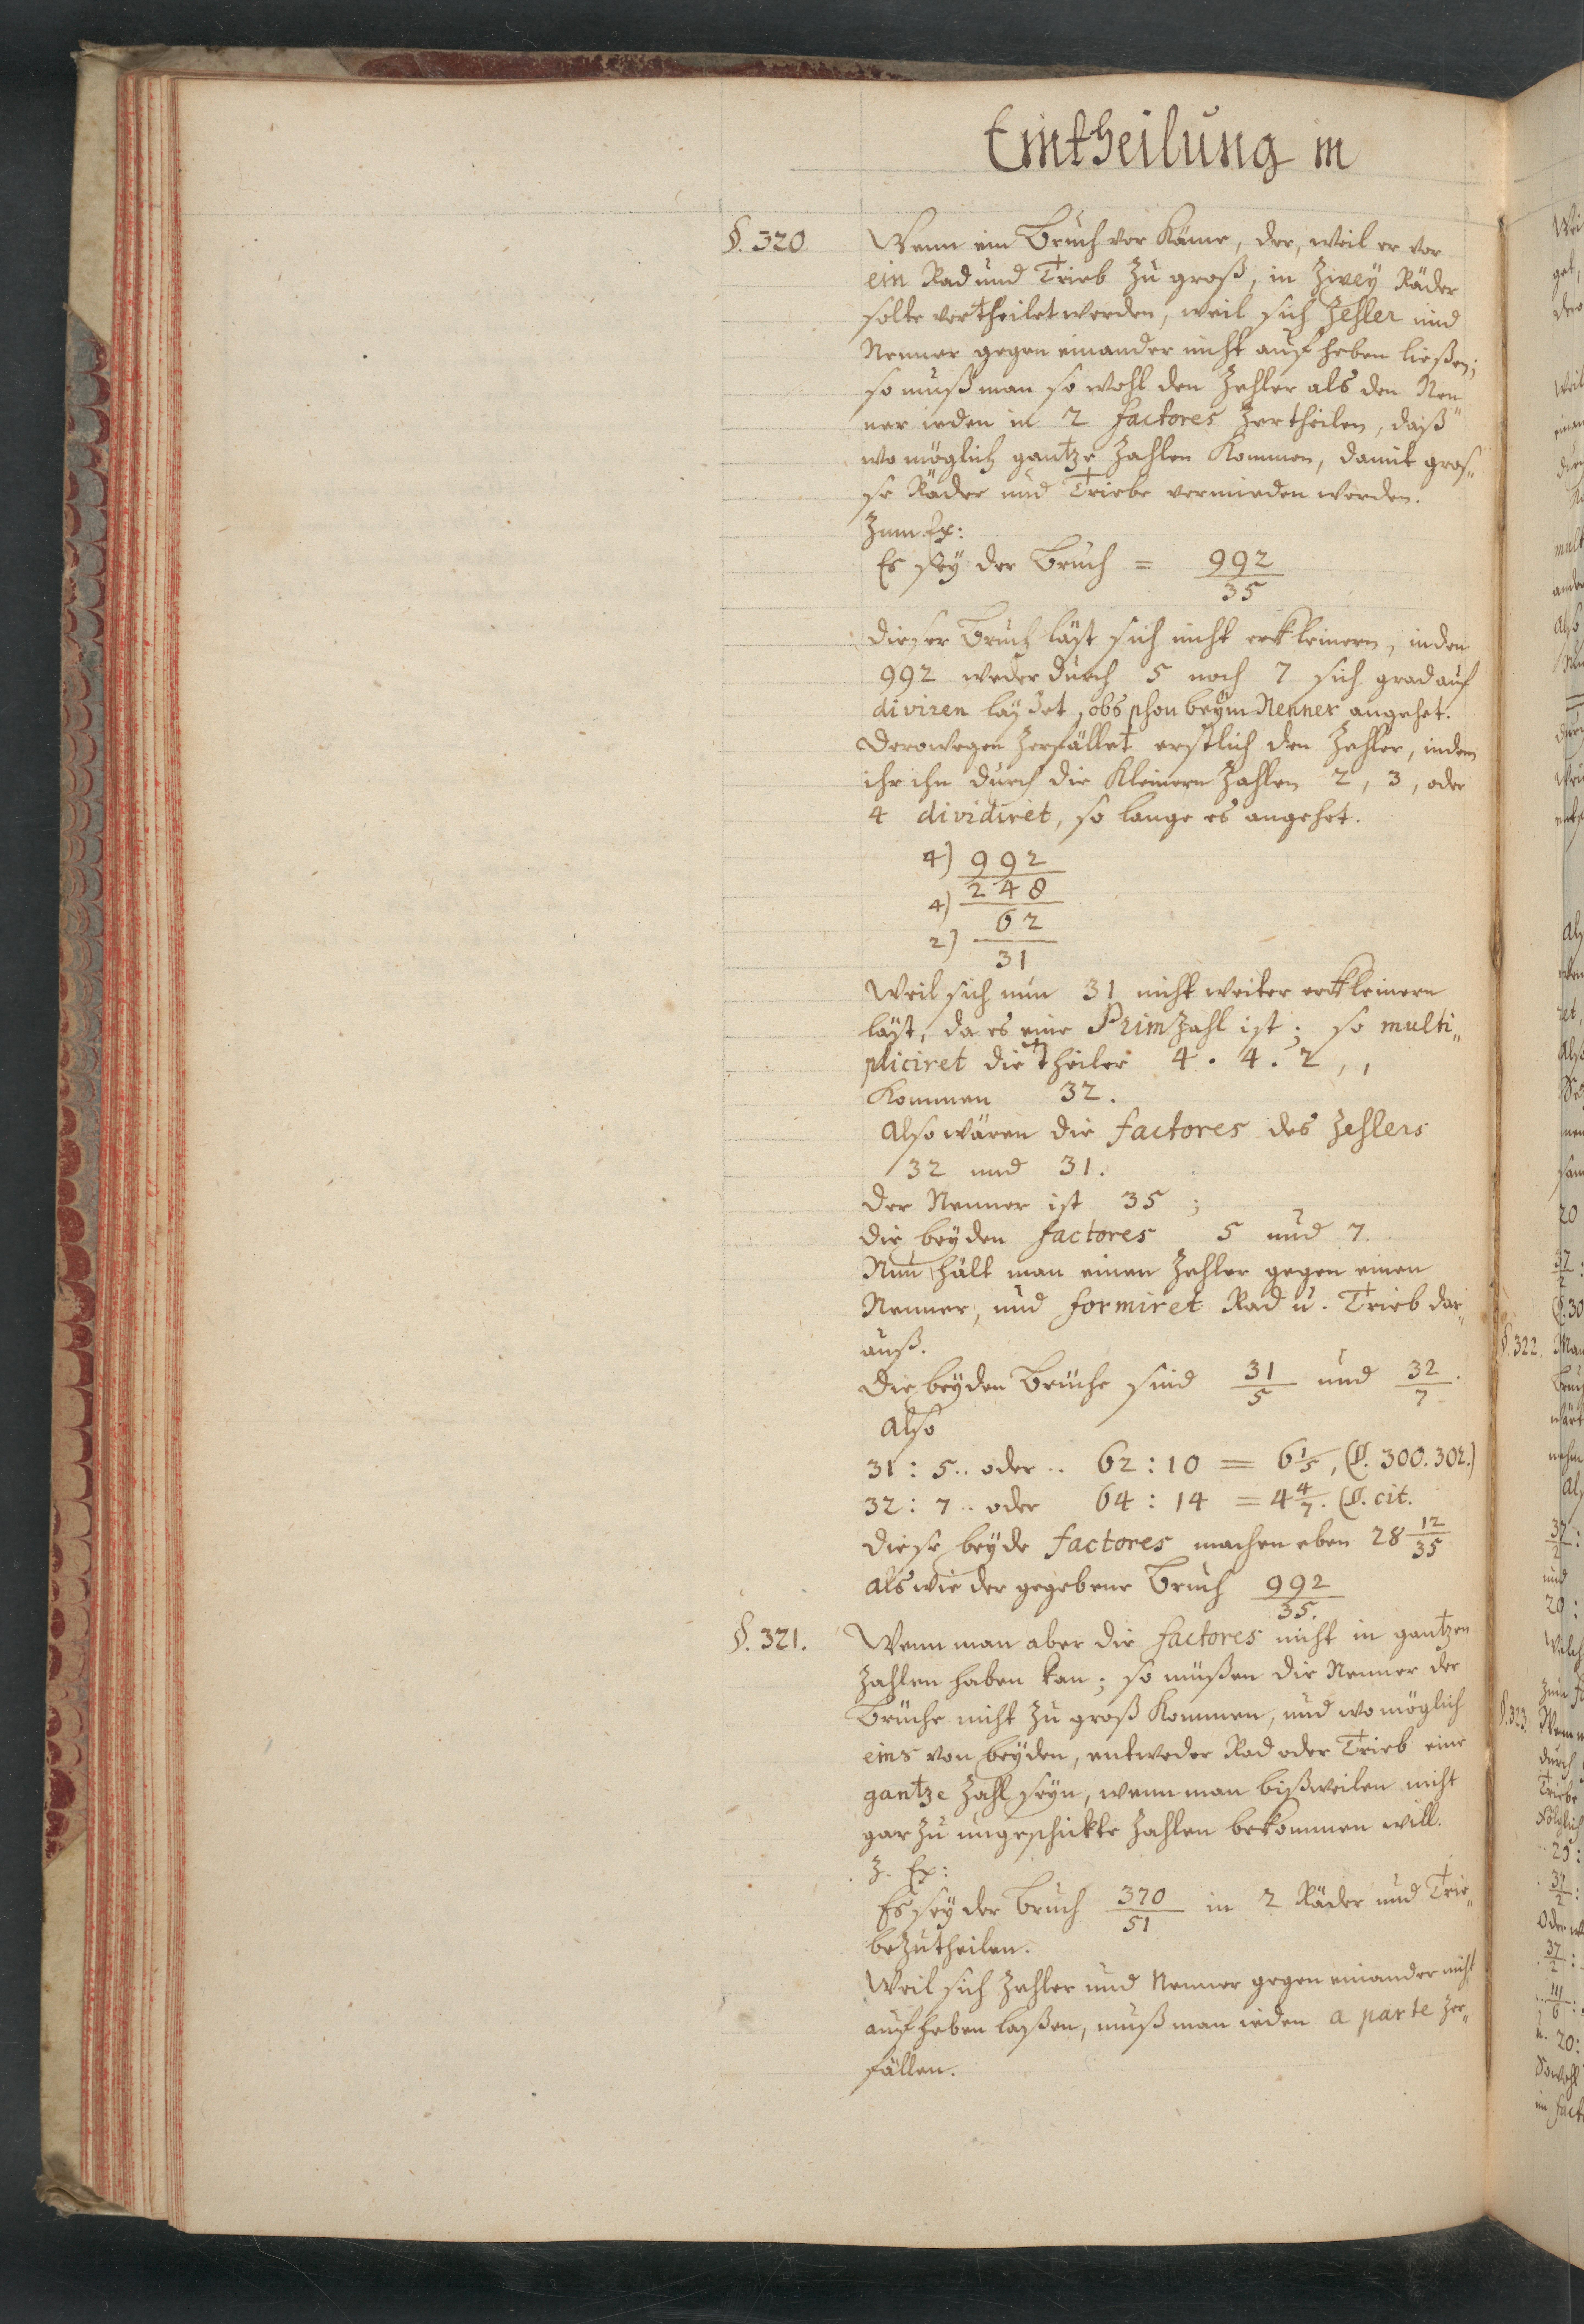 Eintheilung in
§. 320. Wenn ein Bruch vor käme, der, weil er vor
ein Rad und Trieb zu groß, in zwey Räder
solte vertheilet werden, weil sich Zehler und
Nenner gegen einander nicht auf heben ließen;
so muß man so wohl den Zehler als den Nen„
ner ieden in 2 factores zertheilen, daß
wo möglich gantze Zahlen kommen, damit gros„
se Räder und Triebe vermieden werden.
Zum Ex:
Es sey der Bruch = 992/35
dieser Bruch läst sich nicht erkleinern, in den
992 weder durch 5 noch 7 sich grad auf
diviren obs schon beym Nenner angehet.
Derowegen zerfället erstlich den Zehler, indem
ihr ihn durch die kleinern Zahlen 2, 3, oder
4 dividiret, so lange es angehet.
4) 992
4) 248
2) 62
31
Weil sich nun 31 nicht weiter erkleinern
läst, da es eine Primzahl ist; so multi„
pliciret die theiler 4. 4. 2,,
kommen 32.
Also wären die factores des Zehlers
32 und 31.
Der Nenner ist 35;
die beyden factores 5 und 7.
Nun hält man einen Zehler gegen einen
Nenner, und formiret Rad u. Trieb dar„
auß.
Die beyden Brüche sind 31/5 und 32/7.
Also
31 : 5.. oder .. 62 : 10 = 6 1/5, (§. 300. 302.)
32 : 7.. oder 64 : 14 = 4 4/7. (§. cit.
diese beyde factores machen eben 28 12/35
als wie der gegebene Bruch 992/35.
§. 321. Wenn man aber die factores nicht in gantzen
Zahlen haben kan; so müßen die Nenner der
Brüche nicht zu groß kommen, und wo möglich
eins von beyden, entweder Rad oder Trieb eine
gantze Zahl seyn, wenn man bißweilen nicht
gar zu ungeschickte Zahlen bekommen will.
Z. Ex:
Es sey der Bruch 370/51 in 2 Räder und Trie„
be zutheilen.
Weil sich Zehler und Nenner gegen einander nicht
auf heben laßen, muß man ieden a parte zer„
fällen.
§. 322.
§. 323.